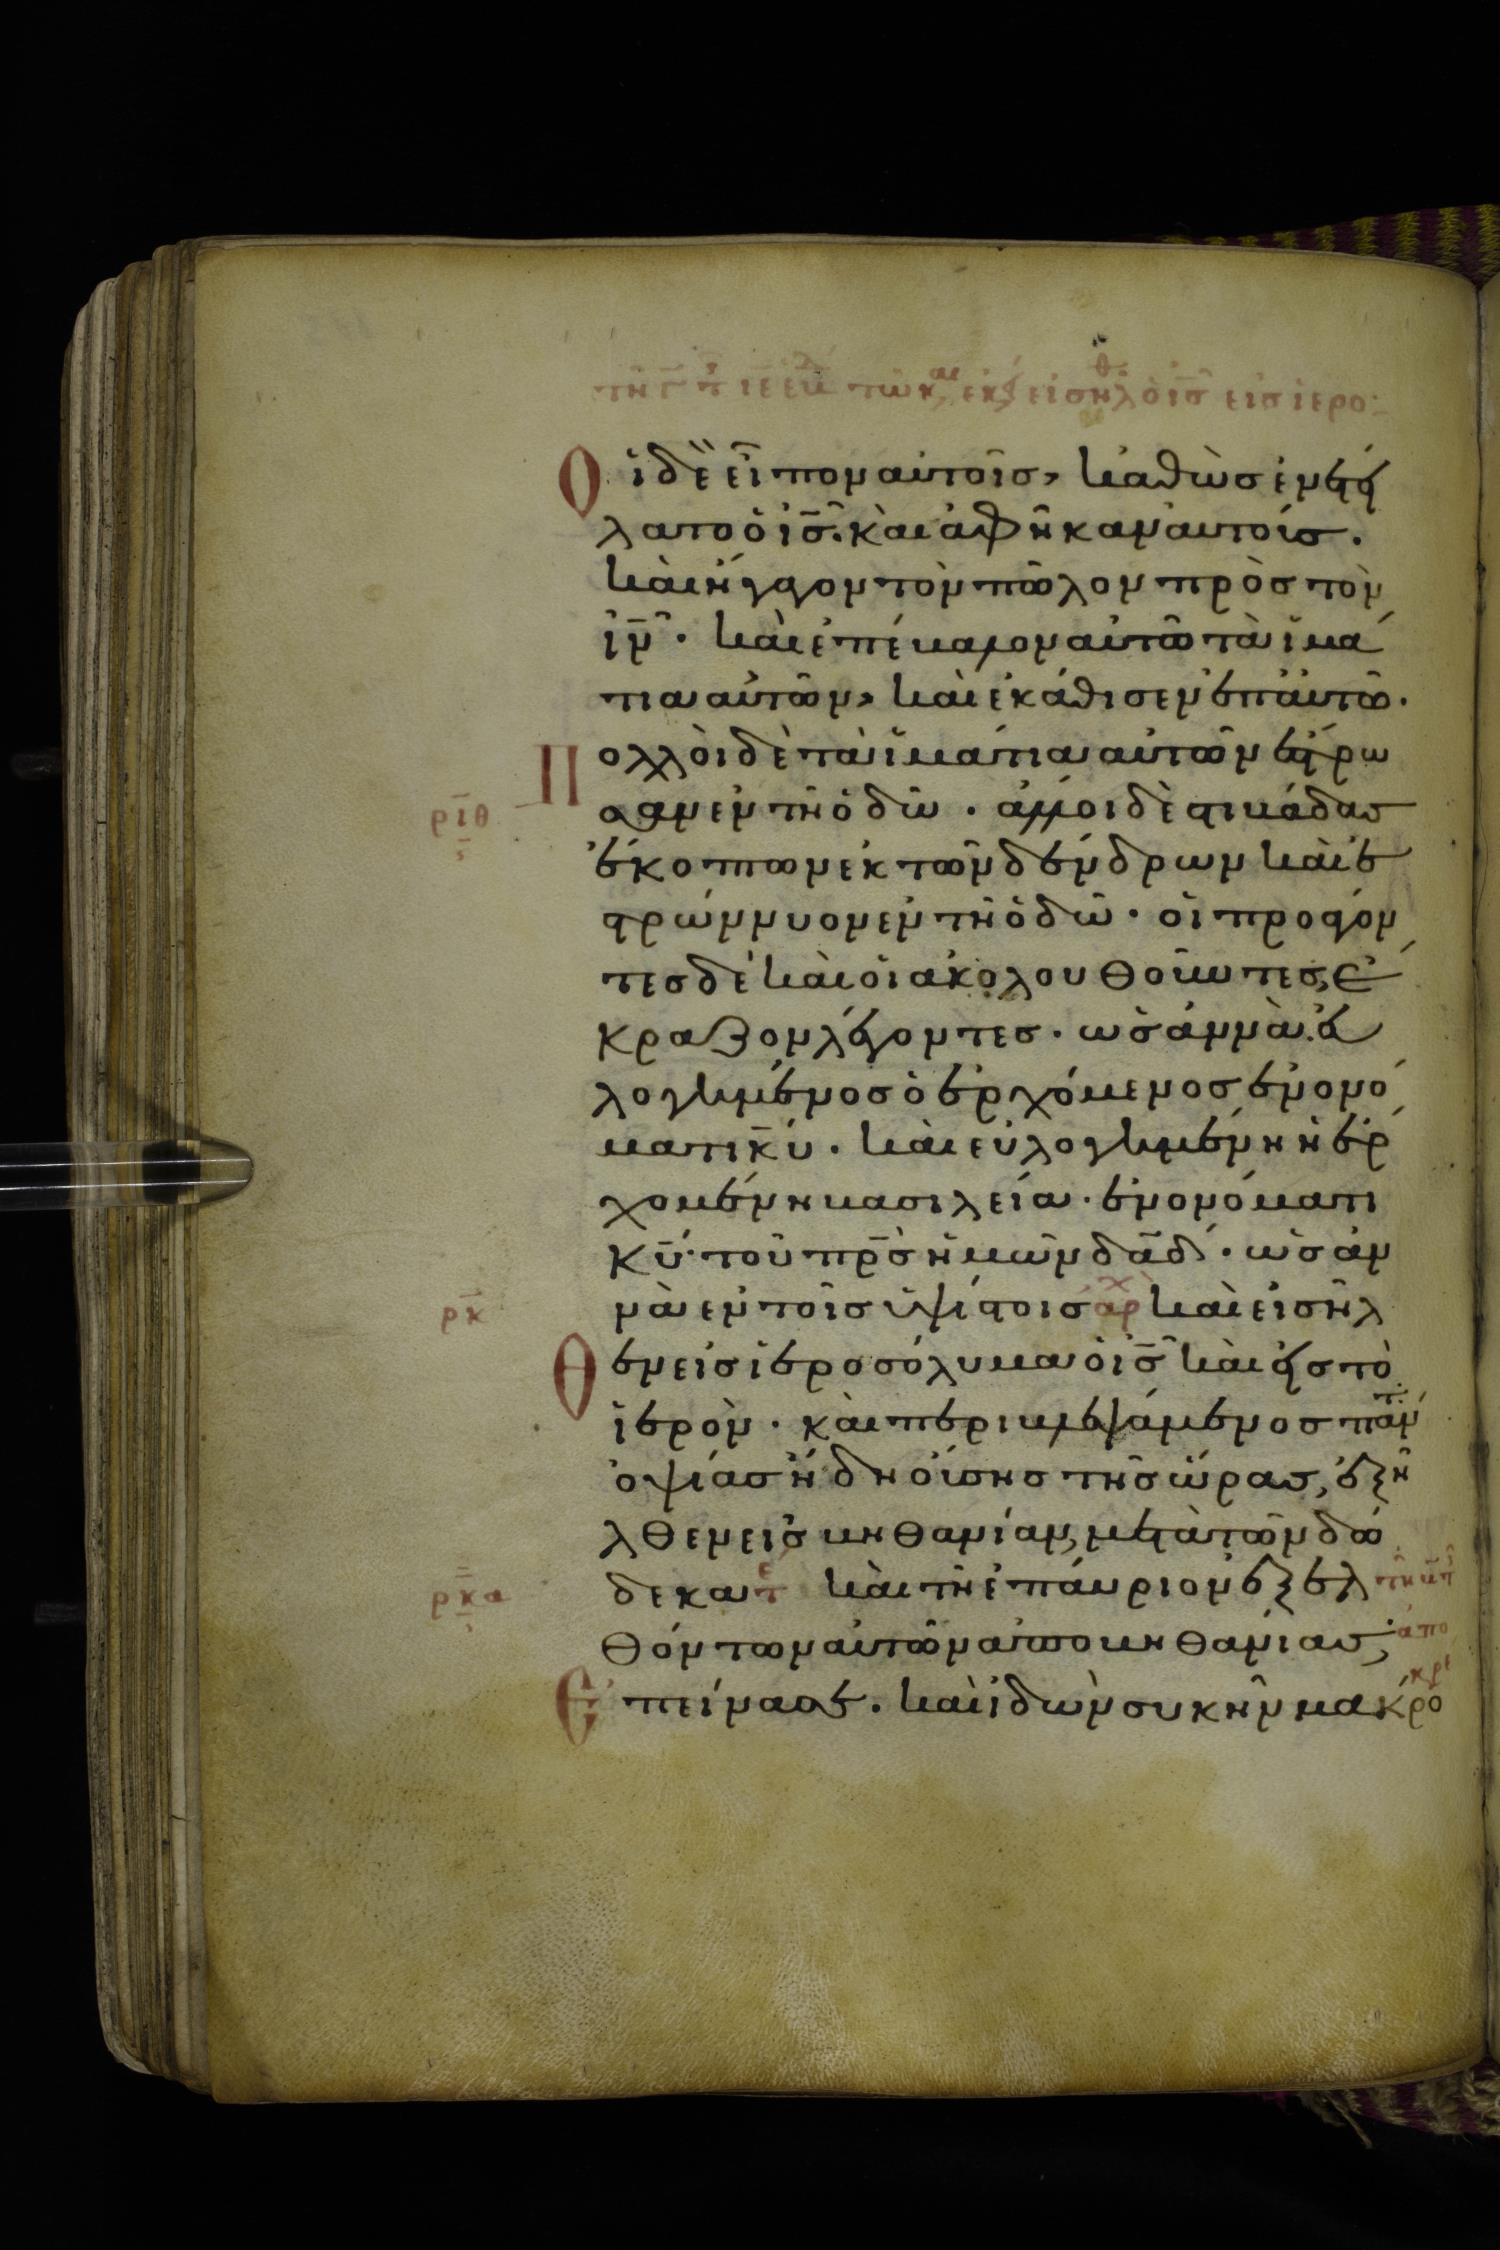 Οἱ δὲ εἶπον αὐτοῖς, καθὼς ἐνετεί
λατο ὁ ις̄. καὶ ἀφῆκαν αὐτοίς.
καὶ ἤγαγον τὸν πῶλον πρὸς τὸν
ιν̄. καὶ ἐπέβαλον αὐτῶ τὰ ἱμά
τια αὐτῶν, καὶ ἐκάθισεν ἐπ αὐτῶ.
Πολλοὶ δὲ τὰ ἱμάτια αὐτῶν ἔστρω
ριθ σαν ἐν τῆ ὁδῶ. ἄλλοι δὲ στιβάδας
ἔκοπτων ἐκ τῶν δένδρων καὶ ἐ
στρώννυον ἐν τῆ ὁδῶ. οἱ προάγον
τες δὲ καὶ οἱ ἀκολουθοῦντες, ἔ
κραζον λέγοντες. ὡσάννὰ. εὐ
λογημένος ὁ ἐρχόμενος ἐν ὀνό
ματι κ̄υ. καὶ εὐλογημένη ἡ ἐρ
χομένη βασιλεία. ἐν ὀνόματι
κ̄υ. τοῦ πρ̄ς ἡμῶν δᾱδ. ὡσάν
ρκ νὰ ἐν τοῖς ὑψίστοις αρχ καὶ εἰσῆλ
Θεν εἰς ἱεροσόλυμα ὁ ις̄ καὶ εἰς τὸ
ἱερὸν. καὶ περιβλεψάμενος πάντ
ὀψίας ἤδη οὔσης τῆς ὥρας, ἐξῆ
λθεν εἰς βηθανίαν, μετὰ τῶν δώ
ρκα δεκα τε καὶ τῆ ἐπάυριον ἐξελ
θόντων αὐτῶν ἀπο βηθανίας,
Ἐπείνασε. καὶ ἰδὼν συκῆν μακρο